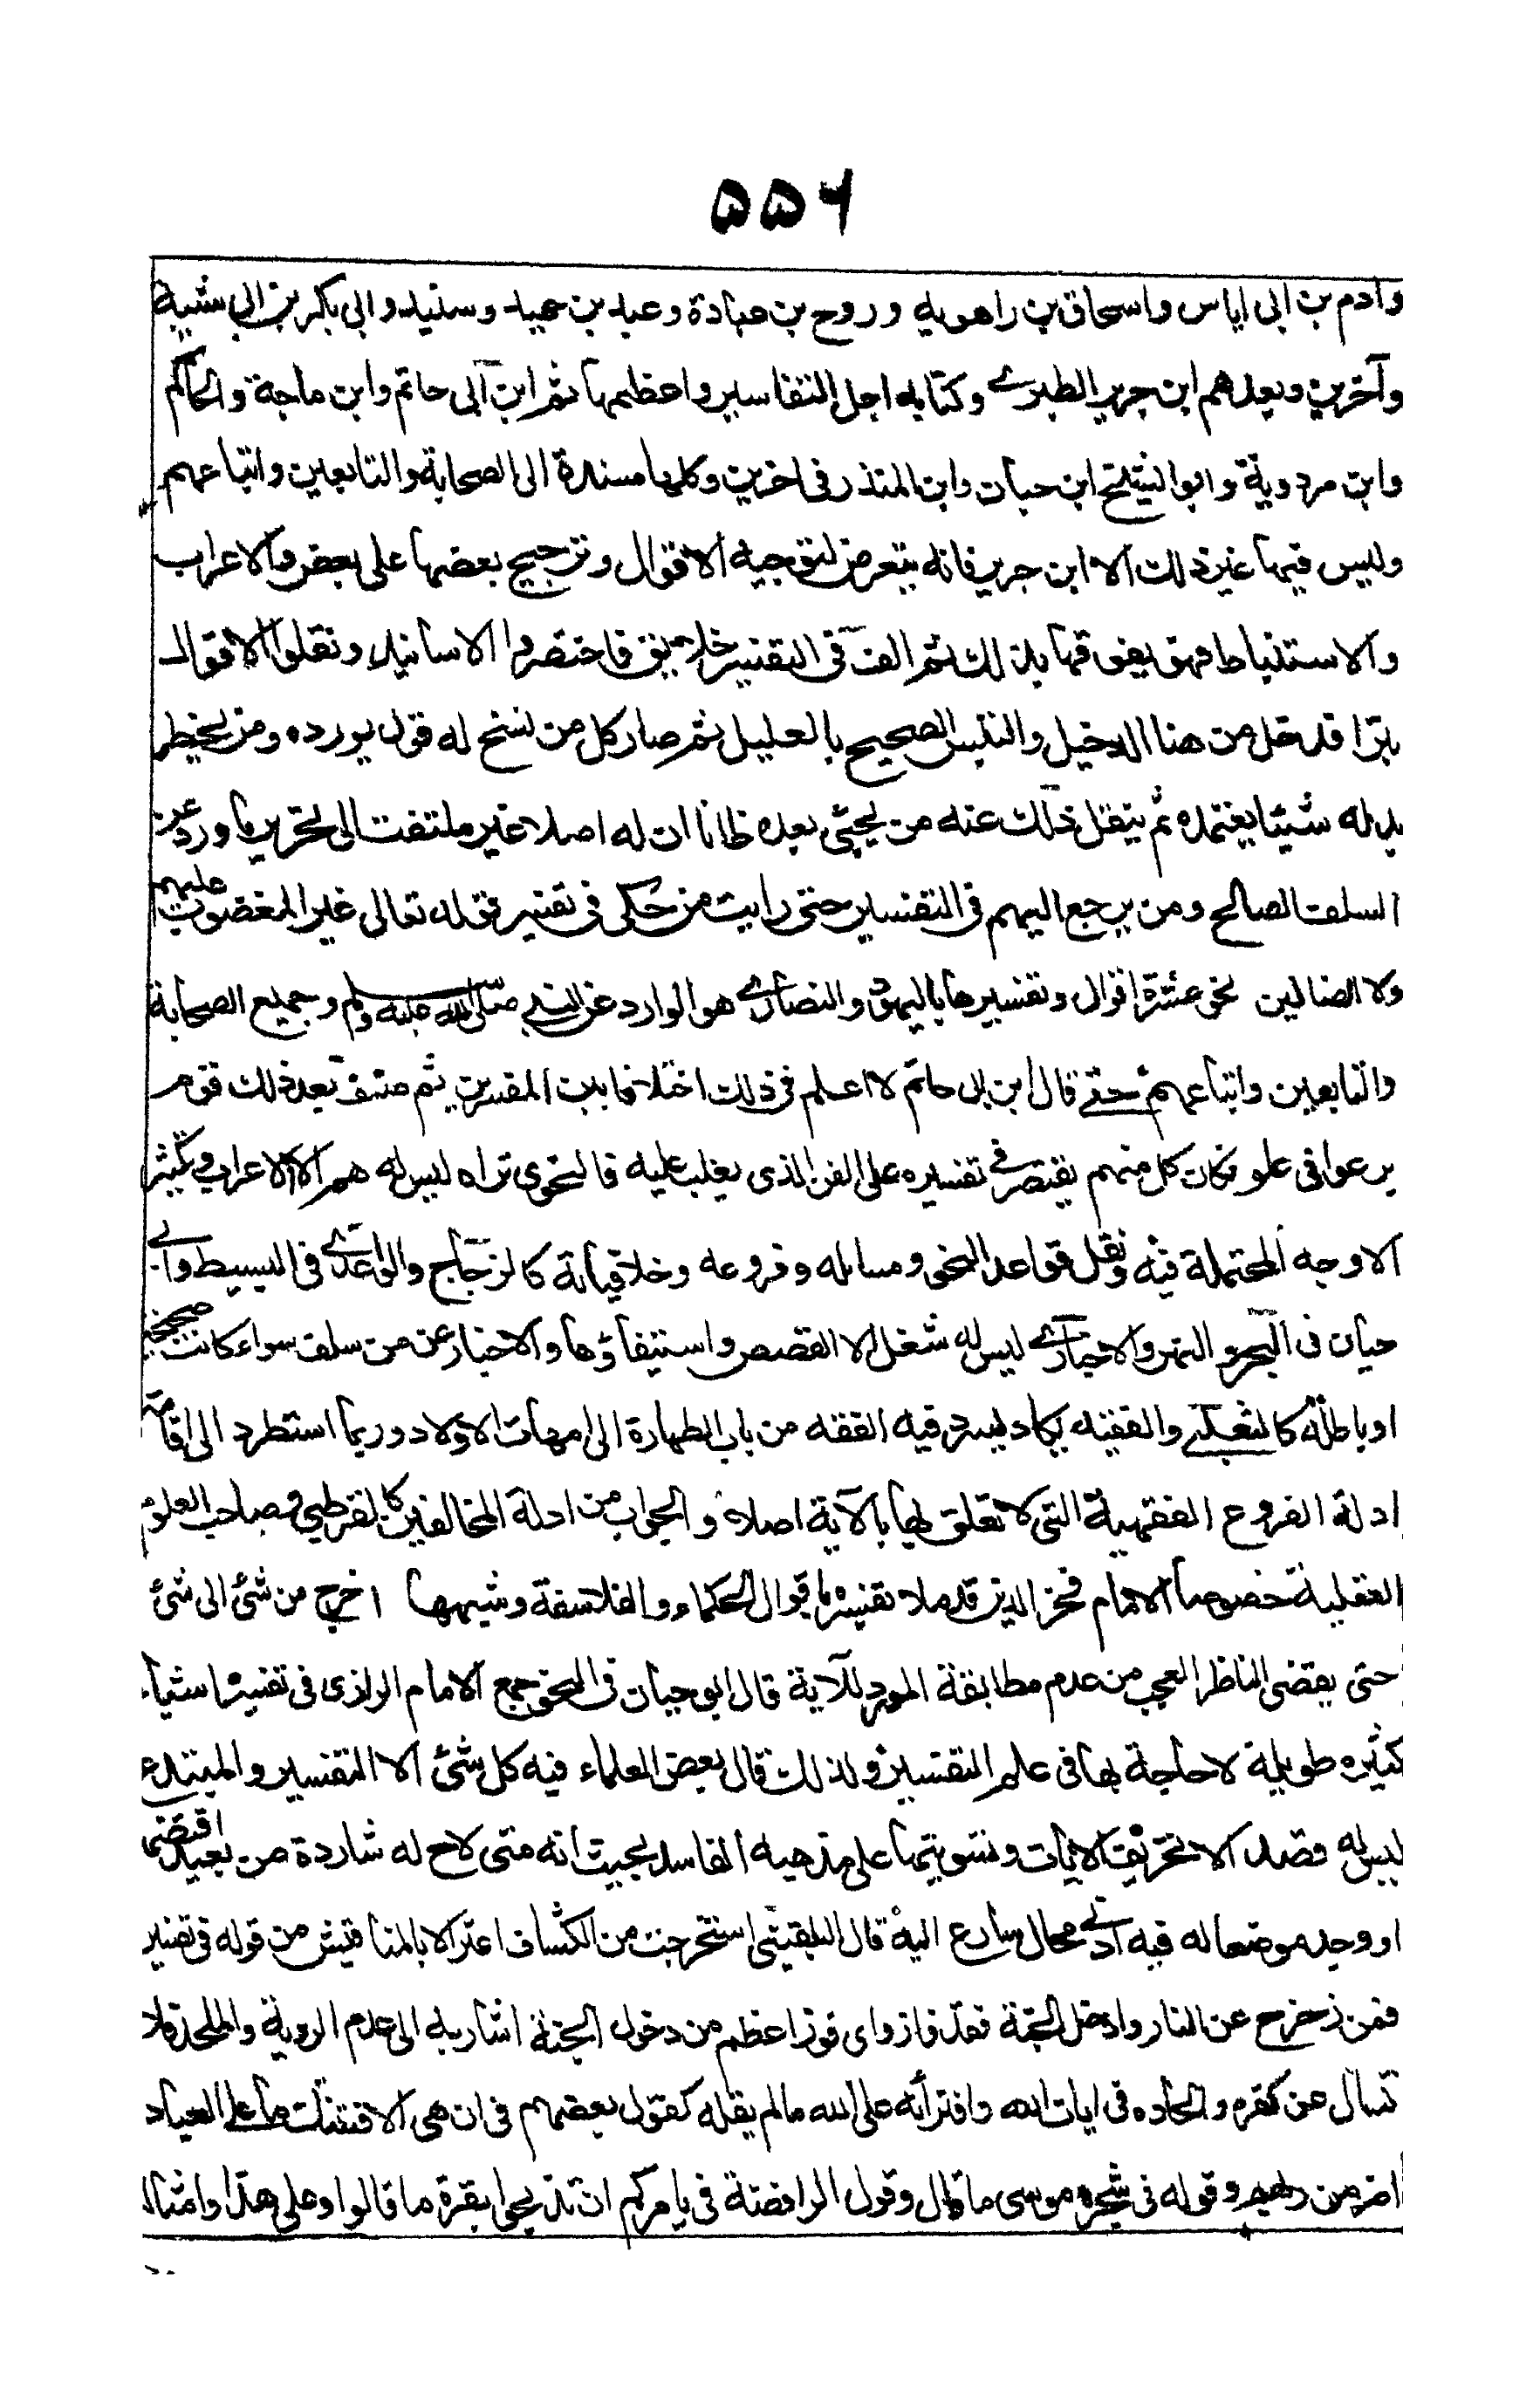 ۵۵۶
وآدم بن ابی ایاس واسحاق بن راهویه وروح بن عبادة وعبد بن حمید وسنید وابی بکر بن ابی شیبة
وآخرین وبعدهم ابن جریر الطبرے وکتابه اجل التفاسیر واعظمها ثم ابن ابی حاتم وابن ماجة والحاکم
وابن مردویة وابو الشیخ ابن حبان وابن المنذر فی اخرین وکلها مسندة الی الصحابة والتابعین واتباعهم
ولیس فیها غیر ذلك الا ابن جریر فانه یتعرض لتوجیه الاقوال وترجیح بعضها علی بعض والاعراب
والاستنباط فهو یفوقها بذلك ثم الف فی التفسیر خلایق فاختصروا الاسانید ونقلوا الاقوال
بترا فدخل من هنا الدخیل والتبس الصحیح بالعلیل ثم صار کل من نسخ له قول یورده ومن یخطر
بباله شیئا یعتمده ثم ینقل ذلك عنه من یجیٔ بعده ظانا ان له اصلا غیر ملتفت الی تحریر ما ورد عن
السلف الصالح ومن یرجع الیهم فی التفسیر حتی رایت من حکی فی تفسیر قوله تعالی غیر المغضوب علیهم
ولا الضالین نحو عشرة اقوال وتفسیرها بالیهود والنصارے هو الوارد عن النبی صلی الله علیه وسلم وجمیع الصحابة
والتابعین واتباعهم حتے قال ابن ابی حاتم لا اعلم فی ذلك اختلافا بین المفسرین ثم صنف بعد ذلك قوم
برعوا فی علوم فکان کل منهم یقتصر فے تفسیره علی الفن الذی یغلب علیه فالنحوی تراه لیس له هم الا الاعراب وتکثیر
الاوجه المحتملة فیه ونقل قواعد النحو ومسایله وفروعه وخلافیاته کالزجاج والواحدے فی البسیط وابے
حیان فی البحر والنهر والاخبارے لیس له شغل الا القصص واستیفاؤها والاخبار عن من سلف سواء کانت صحیحة
او باطلة کالثعلبے والفقیه یکاد یسرد فیه الفقه من باب الطهارة الی امهات الاولاد وربما استطرد الی اقامة
ادلة الفروع الفقهیة التی لا تعلق لها بالآیة اصلا و الجواب من ادلة المخالفین کالقرطبی وصاحب العلوم
العقلیة خصوصا الامام فخر الدین قد ملا تفسیره باقوال الحکماء والفلاسفة وشبهها اخرج من شیٔ الی شیٔ
حتی یقضی الناظر العجب من عدم مطابقة المورد للآیة قال ابو حیان فی البحر جمع الامام الرازی فی تفسیره اشیاء
کثیره طویلة لا حاجة بها فی علم التفسیر ولذلك قال بعض العلماء فیه کل شیٔ الا التفسیر والمبتدع
لیس له قصد الا تحریف الآیات وتسویتها علی مذهبه الفاسد بحیث انه متی لاح له شاردة من بعید اقتضی
او وجد موضعا له فیه ادنے مجال سارع الیه قال البلقینی استخرجت من الکشاف اعتزالا بالمناقیش من قوله فی تفسیر
فمن زحزح عن النار وادخل الجنة فقد فاز وای فوز اعظم من دخول الجنة اشار به الی عدم الرویة والملحد فلا
تسأل عن کفره والحاده فی ایات الله وافترائه علی الله مالم یقله کقول بعضهم فی ان هی الا فتنتك ما علی العباد
اضر من ربهم وقوله فی شجره موسی ما قال وقول الرافضة فی یامرکم ان تذبحوا بقرة ما قالوا وعلی هذا وامثال